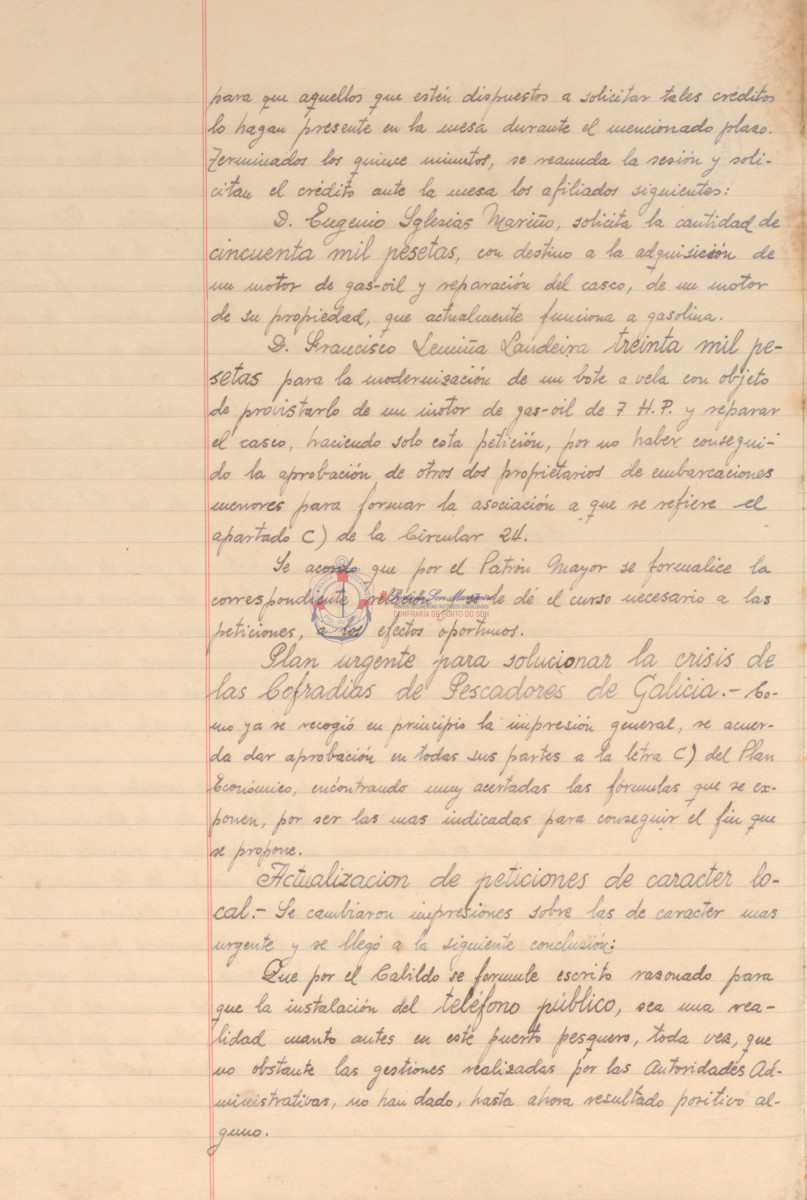 para que aquellos que estén dispuestos a solicitar tales créditos
lo hagan presente en la mesa durante el mencionado plazo.
Terminados los quince minutos, se reanuda la sesión y soli-
citan el crédito ante la mesa los afiliados siguientes:
D. Eugenio Iglesias Mariño, solicita la cantidad de
cincuenta mil pesetas, con destino a la adquisición de
un motor de gas-oil y reparación del casco, de un motor
de su propiedad, que actualmente funciona a gasolina.
D. Francisco Lemiña Landeira treinta mil pe-
setas para la modernisación de un bote a vela con objeto
de provistarlo de un motor de gas-oil de 7 H.P. y reparar
el casco, haciendo solo esta petición, por no haber consegui-
do la aprobación de otros dos proprietarios de embarcaciones
menores para formar la asociación a que se refiere el
apartado C) de la Circular 24.
Se acordo que por el Patrón Mayor se formalice la
correspondiente relación y se le dé el curso necesario a las
peticiones, a los efectos oportunos.
CONFRARÍA DE PORTO DO SON
Plan urgente para solucionar la crisis de
las Cofradias de Pescadores de Galicia.- Co-
mo ya se recogió en principio la impresión general, se acuer-
da dar aprobación en todas sus partes a la letra C) del Plan
Económico, encontrando muy acertadas las fórmulas que se ex-
ponen, por ser las mas indicadas para conseguir el fin que
se propone.
Actualizacion de peticiones de caracter lo-
cal.- Se cambiaron impresiones sobre las de caracter mas
urgente y se llegó a la siguiente conclusión:
Que por el Cabildo se formule escrito razonado para
que la instalación del teléfono público, sea una rea-
lidad cuanto antes en este puerto pesquero, toda vez, que
no obstante las gestiones realizadas por las Autoridades Ad-
ministrativas, no han dado, hasta ahora resultado positivo al-
guno.